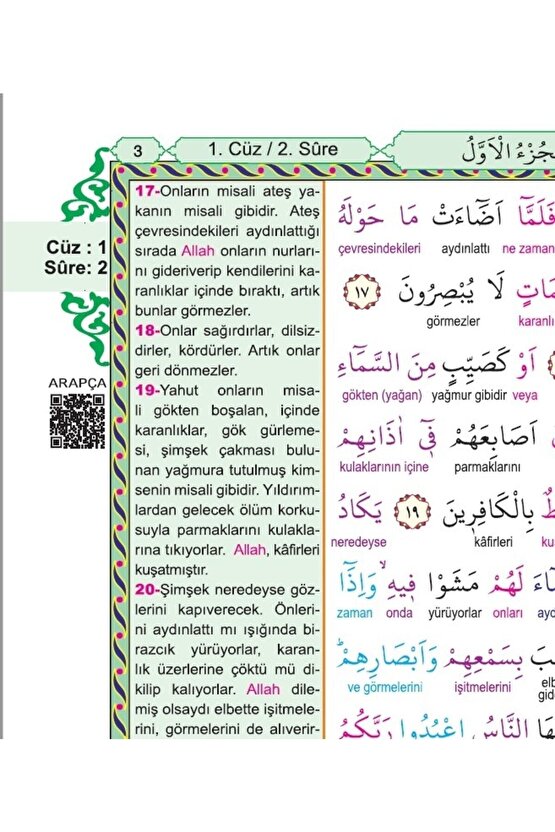 3
1. Cüz / 2. Sûre
اَلْجُزْءُ الْاَوَّلُ
Cüz : 1
Sûre: 2
ARAPÇA
17-Onların misali ateş ya-
kanın misali gibidir. Ateş
çevresindekileri aydınlattığı
sırada Allah onların nurları-
nı gideriverip kendilerini ka-
ranlıklar içinde bıraktı, artık
bunlar görmezler.
18-Onlar sağırdırlar, dilsiz-
dirler, kördürler. Artık onlar
geri dönmezler.
19-Yahut onların misa-
li gökten boşalan, içinde
karanlıklar, gök gürleme-
si, şimşek çakması bulu-
nan yağmura tutulmuş kim-
senin misali gibidir. Yıldırım-
lardan gelecek ölüm korku-
suyla parmaklarını kulakla-
rına tıkıyorlar. Allah, kâfirleri
kuşatmıştır.
20-Şimşek neredeyse göz-
lerini kapıverecek. Önleri-
ni aydınlattı mı ışığında bi-
razcık yürüyorlar, karan-
lık üzerlerine çöktü mü di-
kilip kalıyorlar. Allah dile-
miş olsaydı elbette işitmele-
rini, görmelerini de alıverir-
فَلَمَّٓا اَضَٓاءَتْ مَا حَوْلَهُ
çevresindekileri aydınlattı ne zaman
لَا يُبْصِرُونَ ﴿١٧﴾
görmezler
اَوْ كَصَيِّبٍ مِنَ السَّمَٓاءِ
gökten (yağan) yağmur gibidir veya
اَصَابِعَهُمْ فٖٓي اٰذَانِهِمْ
kulaklarının içine parmaklarını
بِالْكَافِرٖينَ ﴿١٩﴾ يَكَادُ
neredeyse kâfirleri
لَهُمْ مَشَوْا فٖيهِۙ وَاِذَٓا
zaman onda yürüyorlar onları
بِسَمْعِهِمْ وَاَبْصَارِهِمْۜ
ve görmelerini işitmelerini
النَّاسُ اعْبُدُوا رَبَّكُمُ